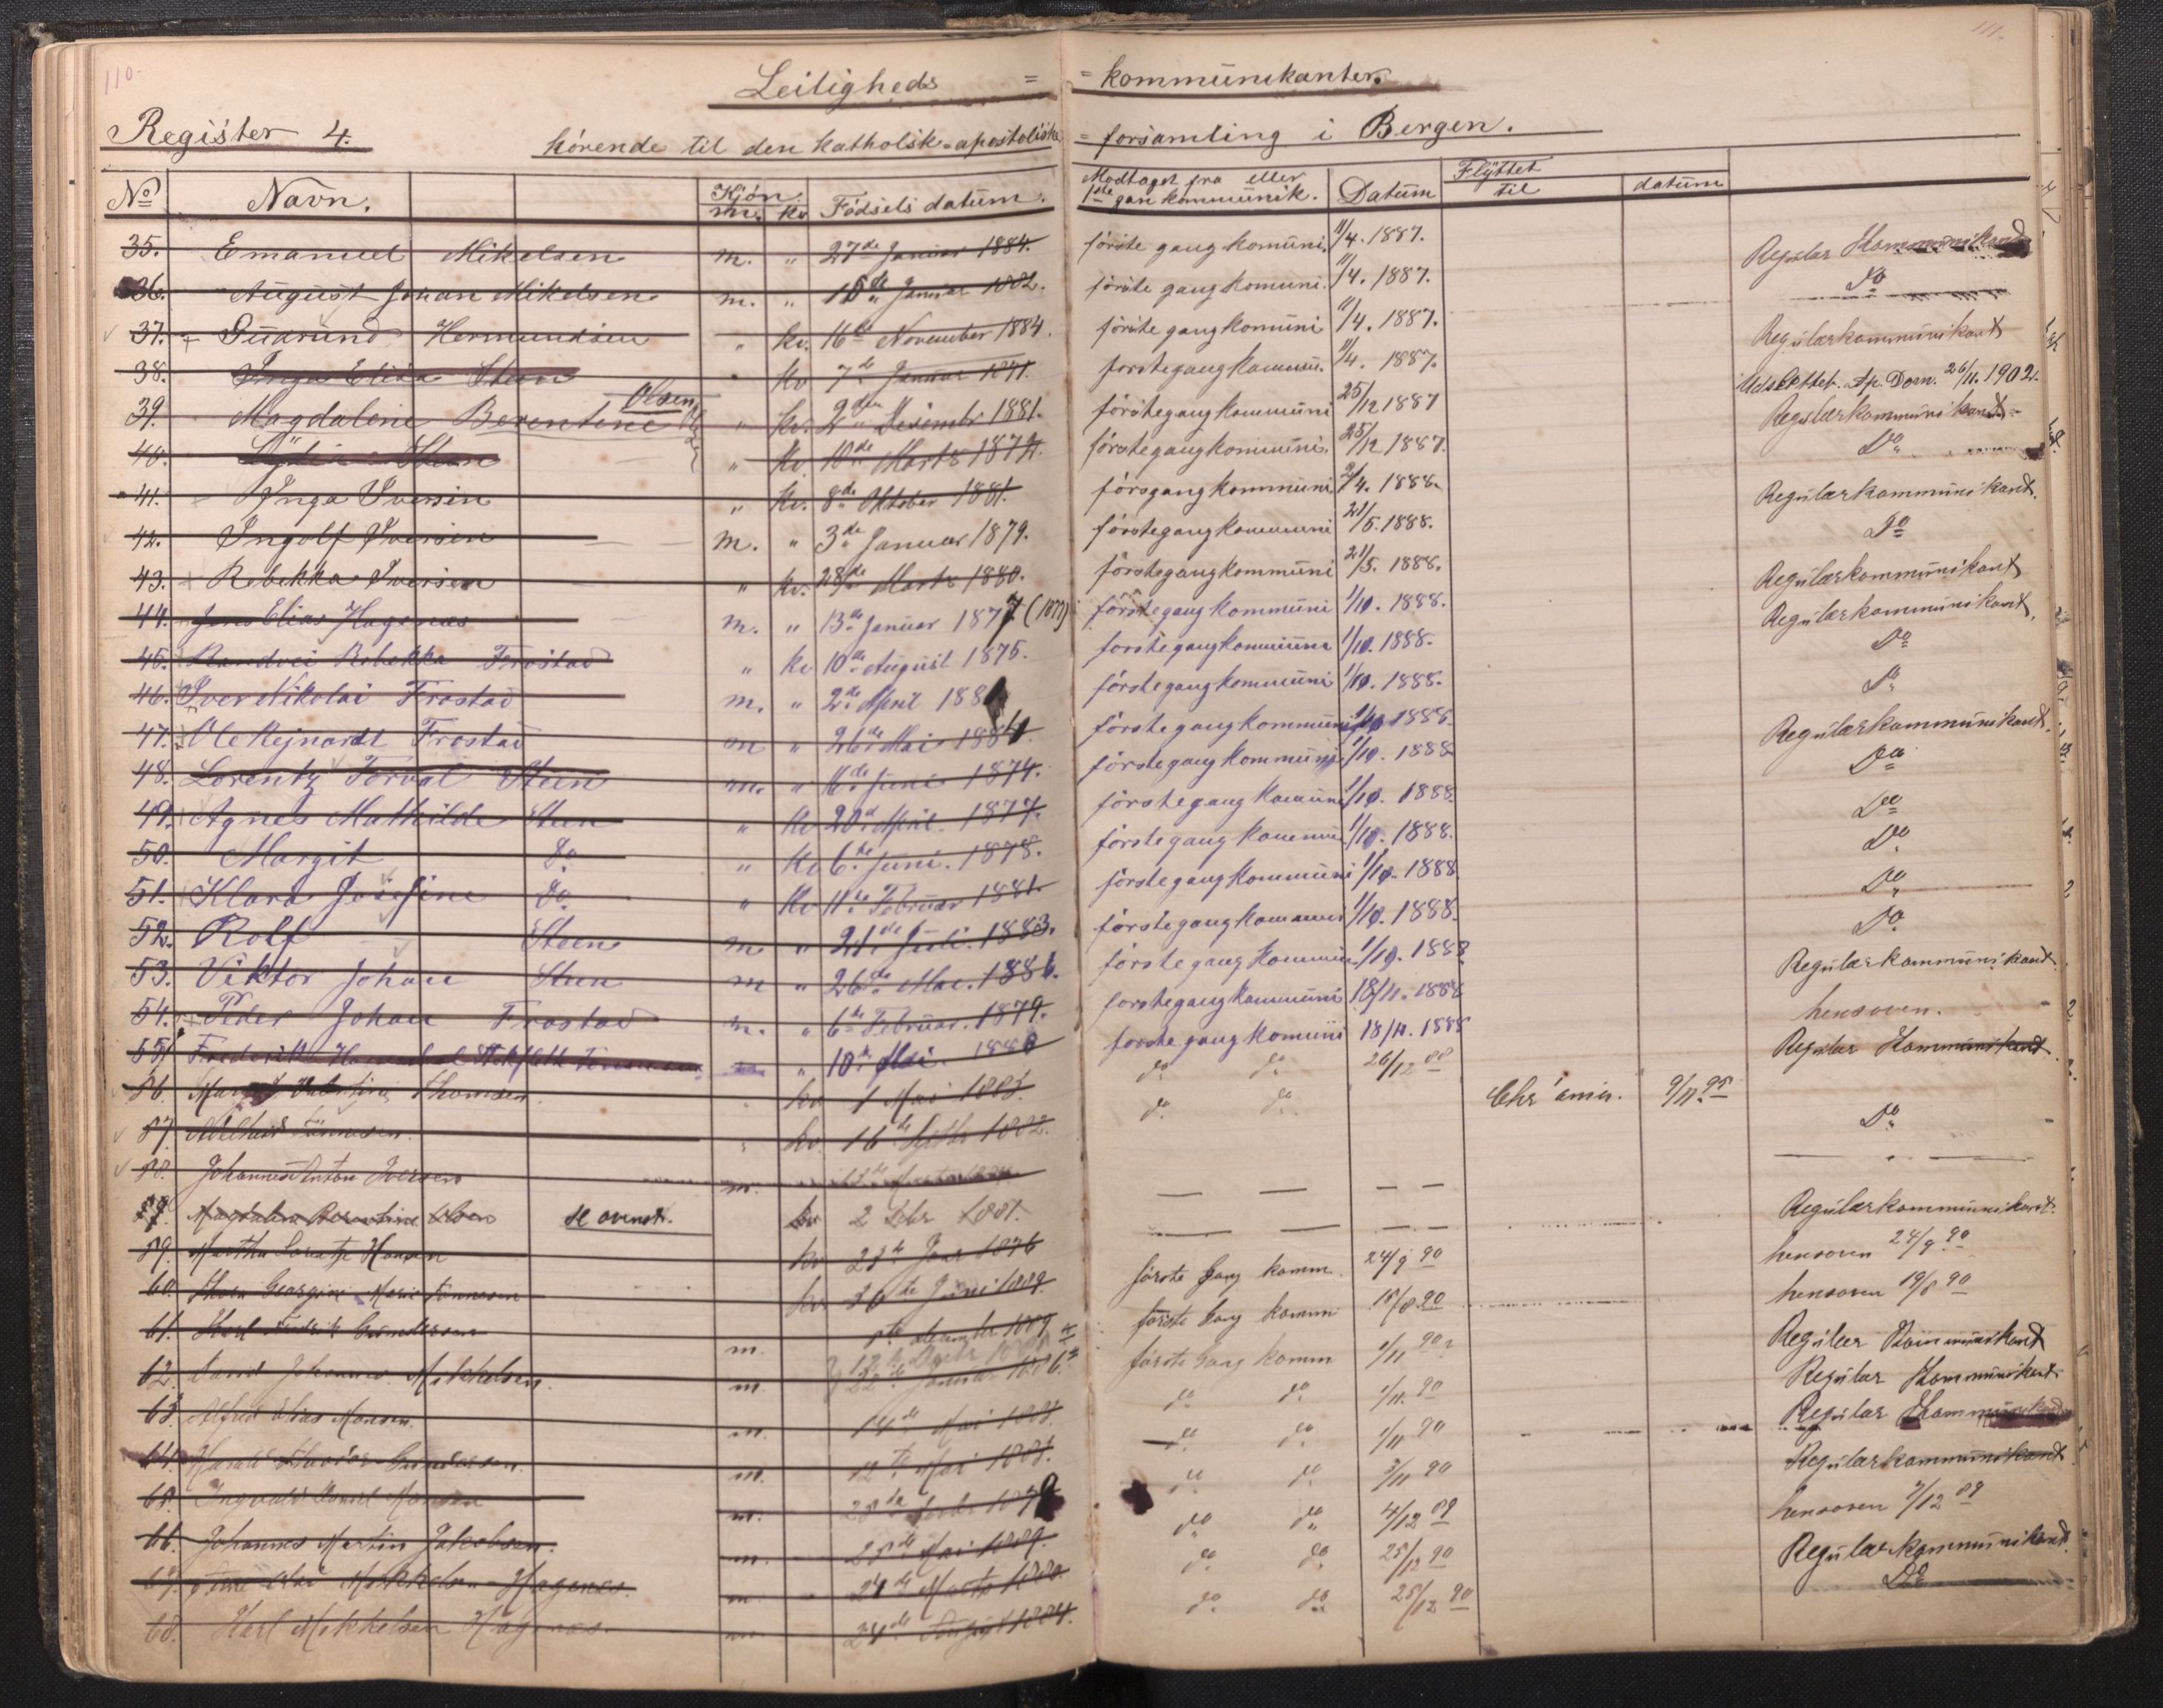 110. 111.
Leiligheds = = kommunikanter.
Register 4. hörende til den katholsk=apostoliske = forsamling i Bergen.
No Navn. Kjön m. kv Födsels datum. Modtaget fra eller 1ste gan kommunik. Datum Flyttet til datum
35. Emanuel Mikelsen m. " 27de Januar 1884. förste gang komuni. 11/4. 1887. Regulær Kommunikant
36. August Johan Mikelsen m. " 18de Januar 1882. förste gang komuni. 11/4. 1887. Do
37. Gudrund Hermundsen " kv. 16de November 1884. förste gang komuni 11/4. 1887. Regulærkommunikant
38. Inga Elisa Steen " kv 7de Januar förstegang kommu. 11/4. 1887. Udslettet. Ap. Dom. 26/11. 1902.
39. Magdaline Berentine Olsen " kv. 2den Desembr 1881. förstegang kommuni 25/12 1887 Regulærkommunikant
40. Steen " kv. 10de Marts 1879. förstegang kommuni. 25/12 1887. Do
41. Inga Iversin " kv. 8de Oktober 1881. försgang kommuni 2/4. 1888. Regulærkommunikant.
42. Ingolf Iversin m. " 3de Januar 1879. förstegang kommuni 21/5. 1888. Do
43. Rebekka Iversen " kv. 28de Marts 1880. förstegang kommuni 21/5. 1888. Regulærkommunikant
44. Jens Elias Hagenæs m. " 13de Januar 1877 (1877) förstegang kommuni 1/10. 1888. Regulærkommunikant.
45. Randvei Rebekka Frostad " kv 10de August 1875. förstegang kommuni 1/10. 1888. Do
46. Iver Nikolai Frostad m. " 2de April 188 förstegang kommuni 1/10. 1888. Do
47. Ole Rejnardt Frostad m " 26de Mai 1884. förstegang kommuni 1/10 1888. Regulærkommunikant.
48. Lorentz Torval Steen m. " de Juni 1874. förstegang kommuni 1/10. 1888 Do
49. Agnes Mathilde Steen " kv 20de April 1877. förstegang komuni 1/10. 1888 Do
50. Margit do " kv 6te Juni. 1878. förstegang kommuni 1/10. 1888. Do
51. Klara Josefine do " kv 11te Februar 1881. förstegang kommuni 1/10. 1888 Do
52. Rolf Steen m " 21de Juli. 1883. förstegang kommuni 1/10. 1888. Do
53. Viktor Johan Steen m " 26de Mai. 1886. förstegang kommuni 1/10. 1888 Regulærkommunikant.
54. Peder Johan Frostad m. " 6te Februar. 1879. förstegang kommuni 18/11. 1888 hensoven.
55. Frederik " 10de Mai. 1888 förstegang komuni 18/11. 1888 Regulær Kommunikant
56. Thomsen kv 1 Mai 1883. do do 26/12 88
57. Tönnesen. " kv 16de 1882. do do Chr'ania. 9/11. 95 Do
58. Johannes Anton Iversen m.
Magdalene Berentine Olsen se ovenst. kv 2 Dbr 1881. Regulærkommunikant.
59. Martha Hansen kv 23de Janr 1876 förste Gang komm. 24/9 90 hensoven 24/9 90
60. Thora Georgine Marie Tönnesen kv 30te Juni 1889. förste Gang komm 15/8.90 hensoven 19/8 90
61. Karl Fredrik Gundersen m. december 1889 förste Gang komm 1/11 90 Regulær Kommunikant
62. David Johannes Mikkelsen. m. 22de Januar 1886. do do 1/11. 90 Regulær Kommunikant.
63. Alfred Elias Monsen. m. 14de Mai do do 1/11 90 Regulær Kommunikant
64. Harald Gundersen. m. 12te Mai do do 3/11 90 Regulærkommunikant
65. Ingvald Daniel Monsen m. do do 4/12 89 hensoven 7/12 89
66. Johannes Martin Jakobsen. m. 28de Mai 1889. do do 25/12 90 Regulærkommunikant.
67. Mikkelsen Hagenæs. m. 24de Marts 1880. do do 25/12 90 Do
68. Karl Mikkelsen Hagenæs. m. 24de August 1884.